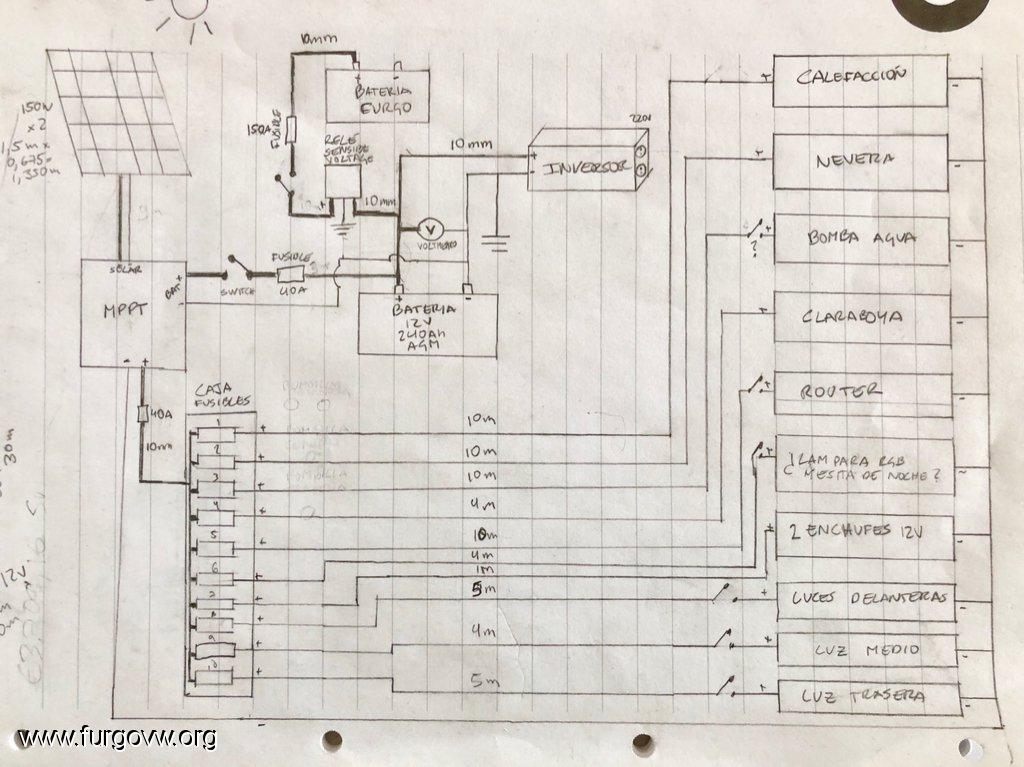 10mm
+ -
BATERIA
FURGO
150A
FUSIBLE
RELÉ
SENSIBLE
VOLTAGE
10mm
150W
x2
1,5m x
0,675=
1,350m
10mm
220V
+
-
INVERSOR
V
VOLTMETRO
SOLAR
MPPT
BAT +
-
- +
SWITCH
FUSIBLE
40A
+ -
BATERIA
12V
240Ah
AGM
40A
10mm
CAJA
FUSIBLES
1
2
3
4
5
6
7
8
9
10
10m
10m
10m
4m
10m
4m
1m
5m
4m
5m
+ CALEFACCIÓN -
+ NEVERA -
?
+ BOMBA AGUA -
+ CLARABOYA -
+ ROUTER -
+ 1 LAMPARA RGB
C MESITA DE NOCHE? -
+ 2 ENCHUFES 12V -
+ LUCES DELANTERAS -
+ LUZ MEDIO -
+ LUZ TRASERA -
-
30m
12V
www.furgovw.org